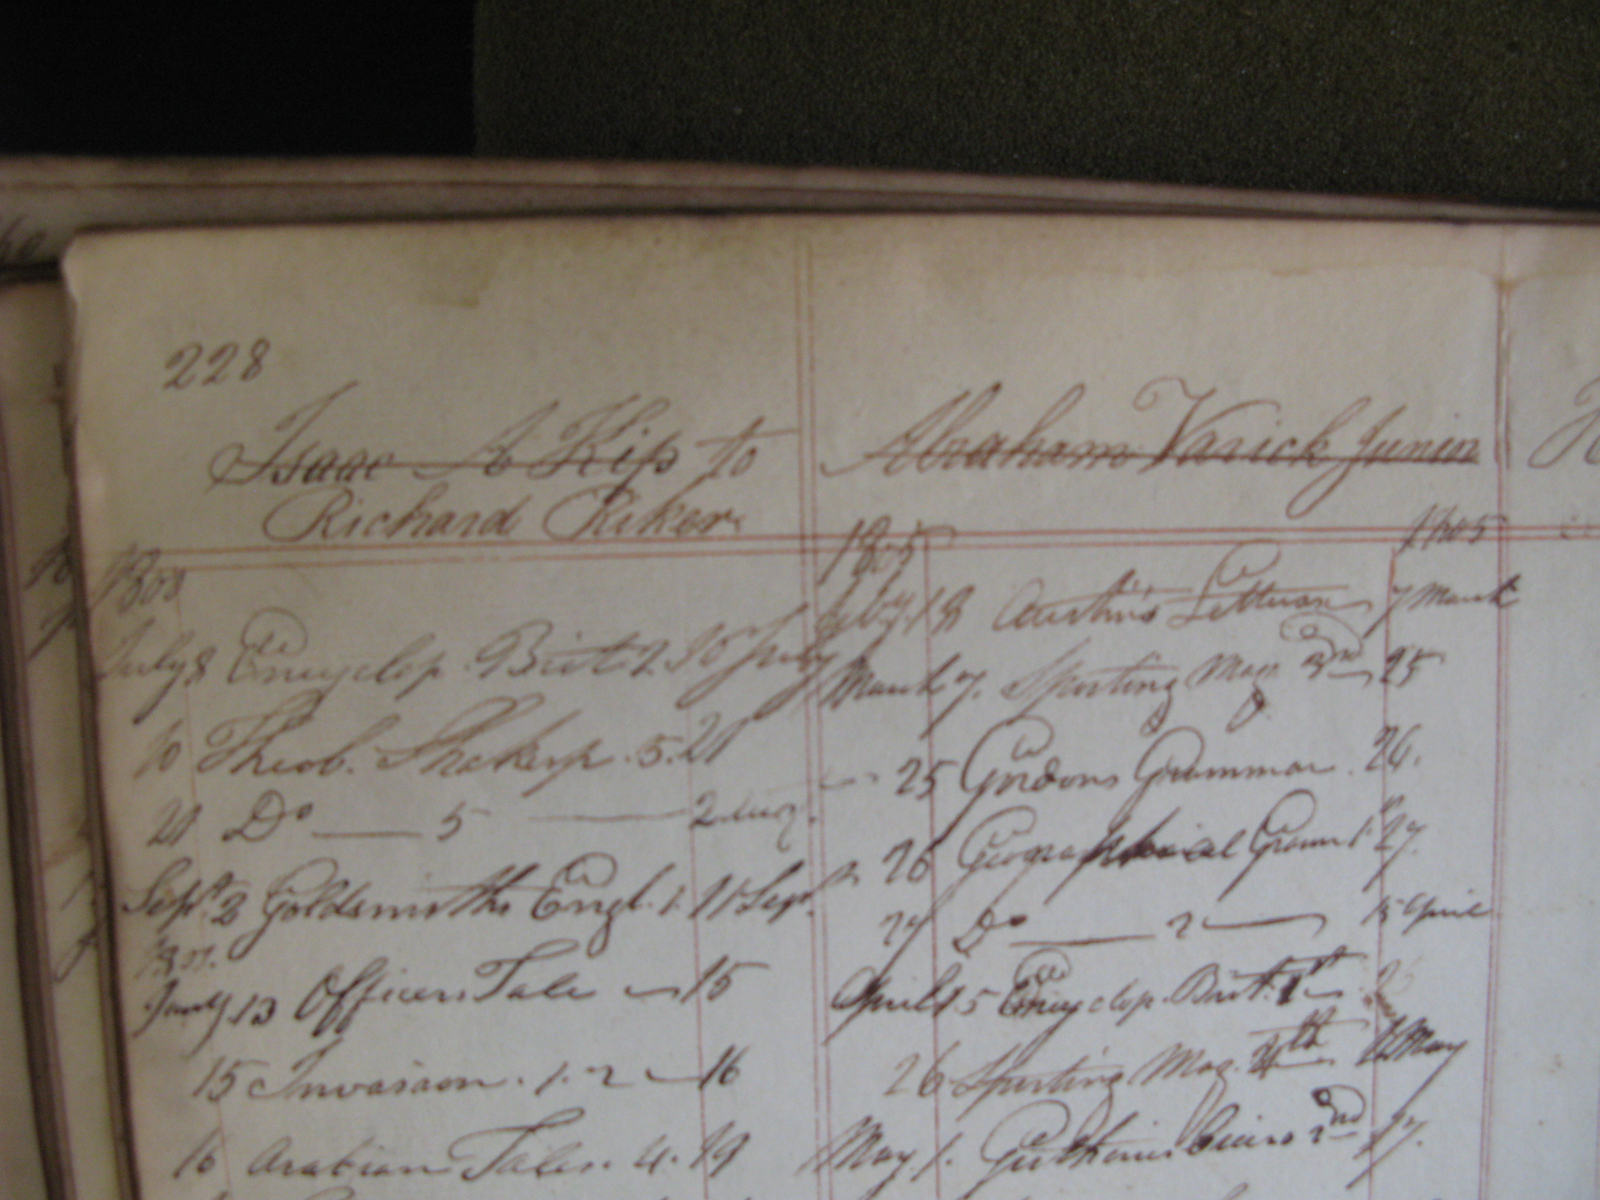 228
Isaac A Kip to
Richard Riker
July 8 Encyclop. Brit. 2. 10 July
10 Theob. Shakesp. 5. 21
21 Do —— 5 —— 2 Aug.
Sept. 2 Goldsmiths Engl. 1. 11 Sept.
Jany 13 Officers Tale — 15
15 Invasion. 1. 2 — 16
16 Arabian Tales. 4. 19
Abraham Varick Junior
1805 1805
Feby. 18 Austins Letters 7 March
March 7. Sporting Mag. 25
25 Gordons Grammar. 26.
26 Geographical Gramr 1st 27.
27 Do —— 2 —— 15 April
April 15 Encyclop. Brit. 1st
26 Sporting Mag. 4th May
May 1. Guthries Cicero 2nd 17.